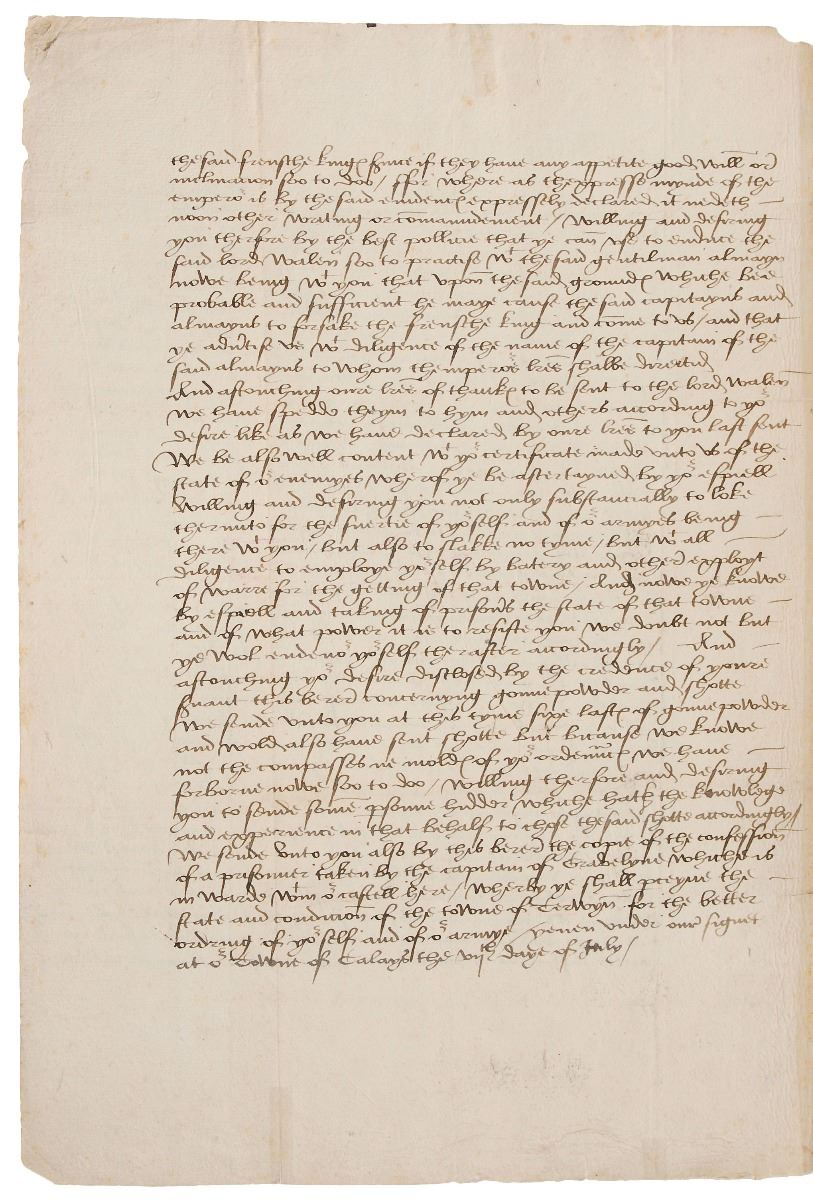 the said frensche king sence if they have any appetite good will or
inclinacion soo to doo / ffor where as thexpresse mynde of the
emperor is by the said evidence expressely declared it nedeth
noon other writing or comaundement / Willing and desiring
you therfore by the best pollicie that ye can use to enduce the
said lord Walen soo to practise wt the said gentilman almayn
nowe being wt you that upon the said ground whiche bee
probable and sufficient he maye cause the said capitayns and
almayns to forsake the frensche king and come to us / and that
ye advertise us wt diligence of the name of the capitain of the
said almayns to whom themperors lres shalbe directid
And as touching oure lres of thanks to be sent to the lord Walen
we have spedde theym to hym and others according to yor
desire like as we have declared by oure lres to you last sent
We be also well content wt yor certificate made unto us of the
state of or enemyes wherof ye be astertayned by yor espiell
Willing and desiring you not only substancially to loke
therunto for the suertie of yorself and of or armyes being
there wt you / but also to slakke no tyme / but wt all
diligence to employe yorself by batery and other exployt
of warre for the getting of that towne / And nowe ye knowe
by espiell and taking of prisoners the state of that towne
and of what power it is to resiste you we doubt not but
ye wol endevor yorself therafter accordingly / And
as touching yor desire disclosed by the credence of youre
servaunt this berer concernyng gonnepowder and shotte
We sende unto you at this tyme sixe lasts of gonnepowder
and wold also have sent shotte but bicause we knowe
not the compasses ne molds of yor ordenunce we have
forborne nowe soo to doo / Willing therfore and desiring
you to sende some psonne hidder whiche hath the knowlege
and expperience in that behalf to chose the said shotte accordingly /
We sende unto you also by this berer the copie of the confession
of a prisonner taken by the capitain of Gravelyne whiche is
in warde wtin or castell here / wherby ye shall pceyve the
state and condicion of the towne of Terwyn for the better
ordring of yorself and of or armye / yeven under our signet
at or Towne of Calays the viijth daye of July /